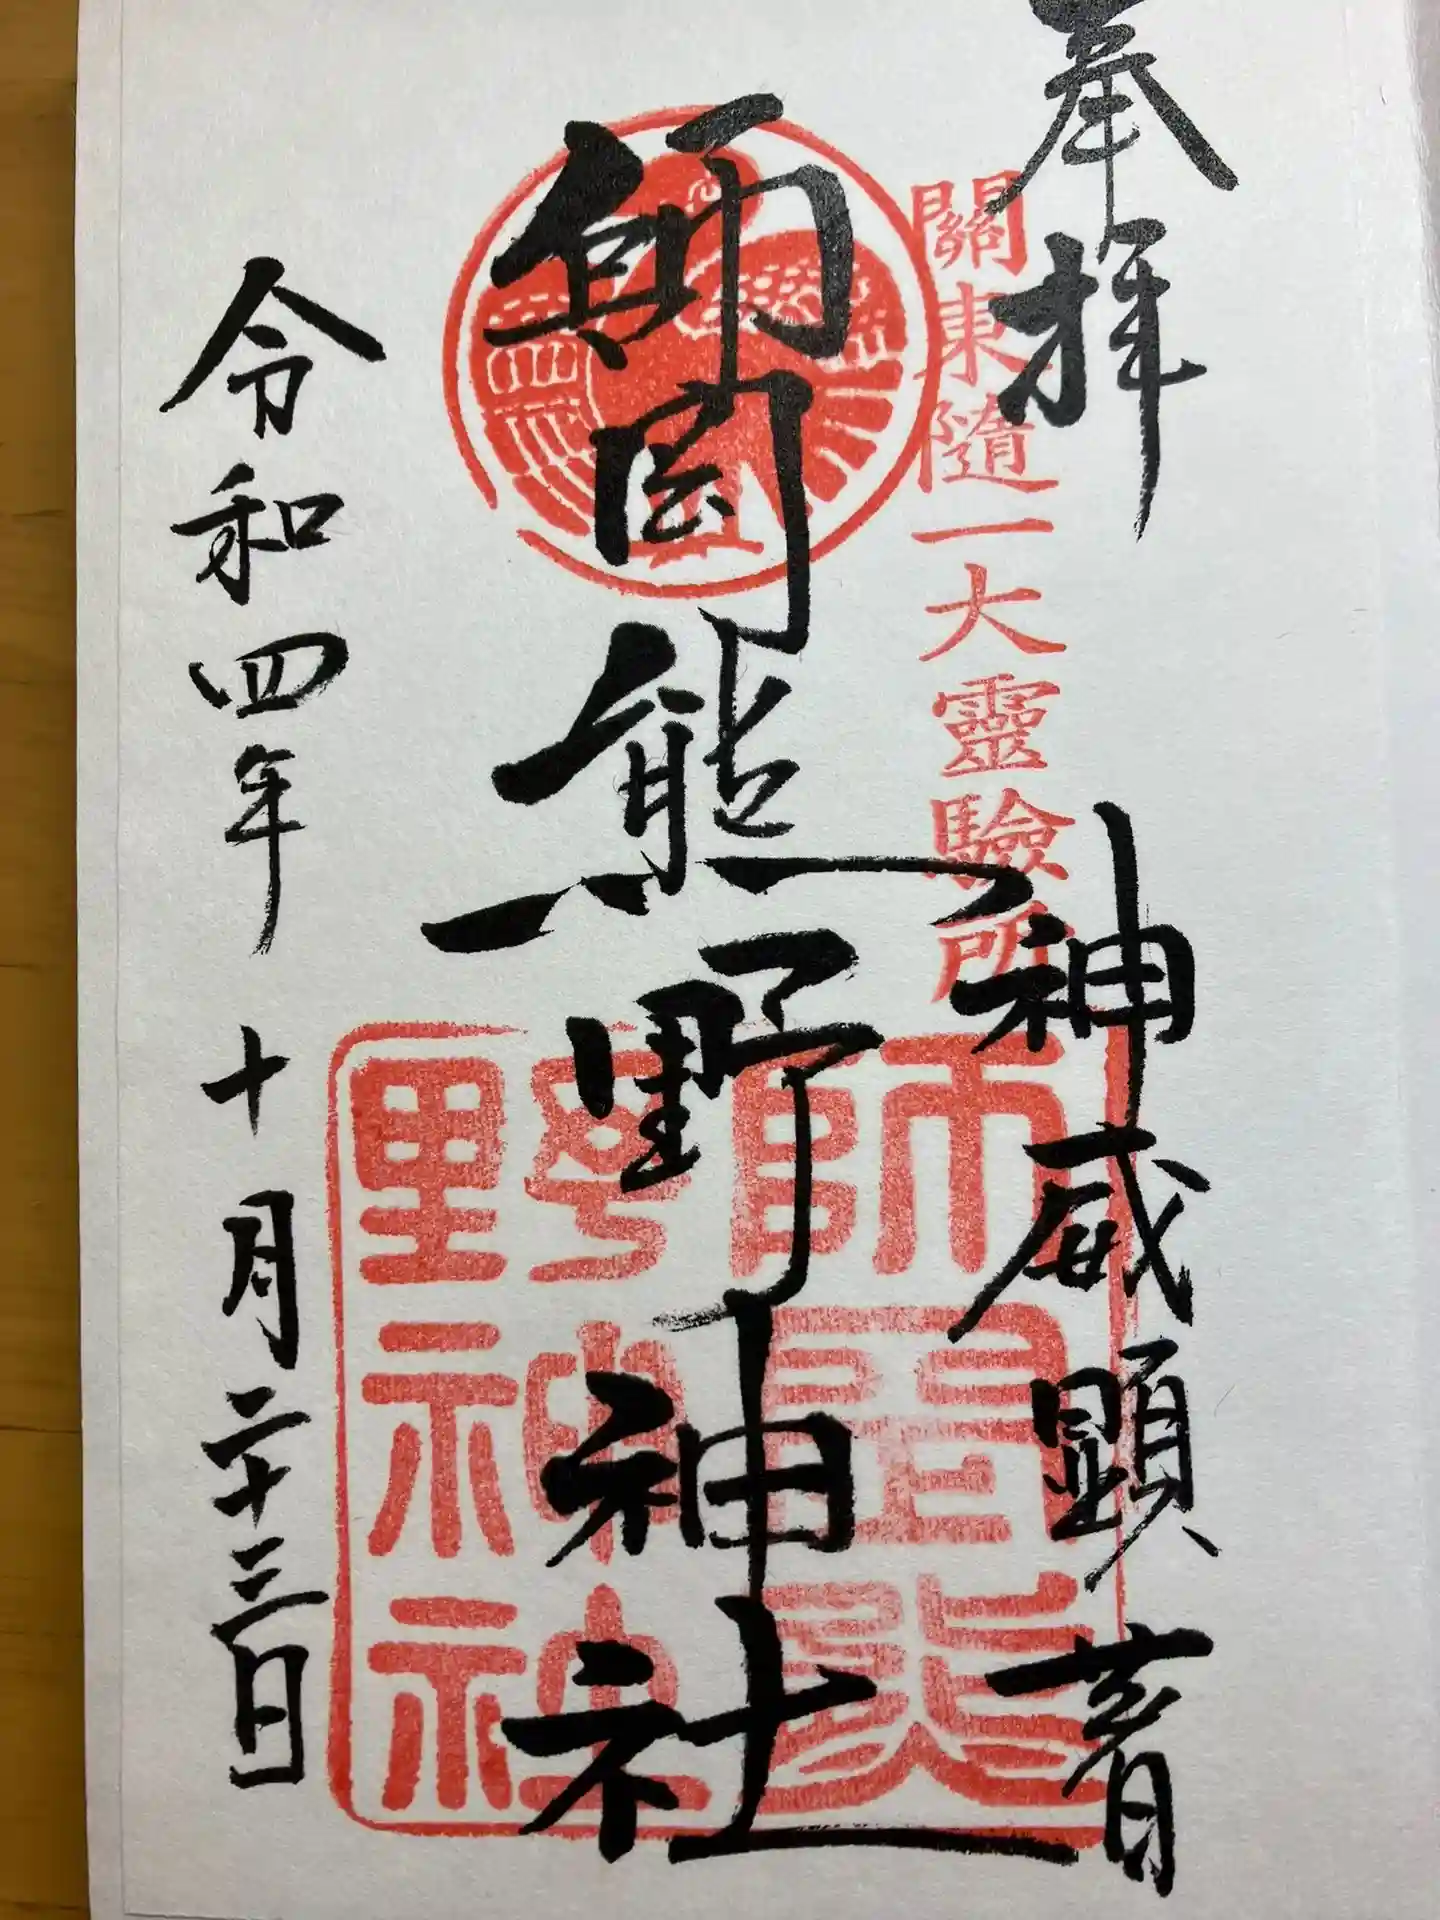 奉拝
關東隨一大靈驗所
神威顕著
師岡熊野神社
師岡熊
野神社
令和四年十月二十三日